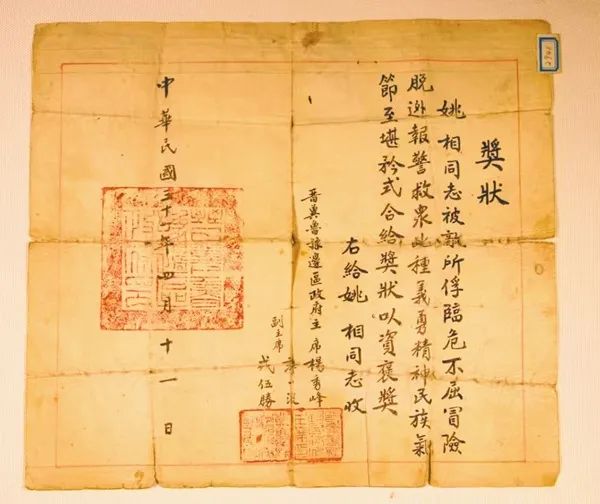 獎狀
姚相同志被敵所俘臨危不屈冒險
脫逃報警救衆此種義勇精神民族氣
節至堪矜式合給獎狀以資褒獎
右給姚相同志收
晋冀魯豫邊區政府主席楊秀峰
副主席薄一波
戎伍勝
中華民國三十年四月十一日